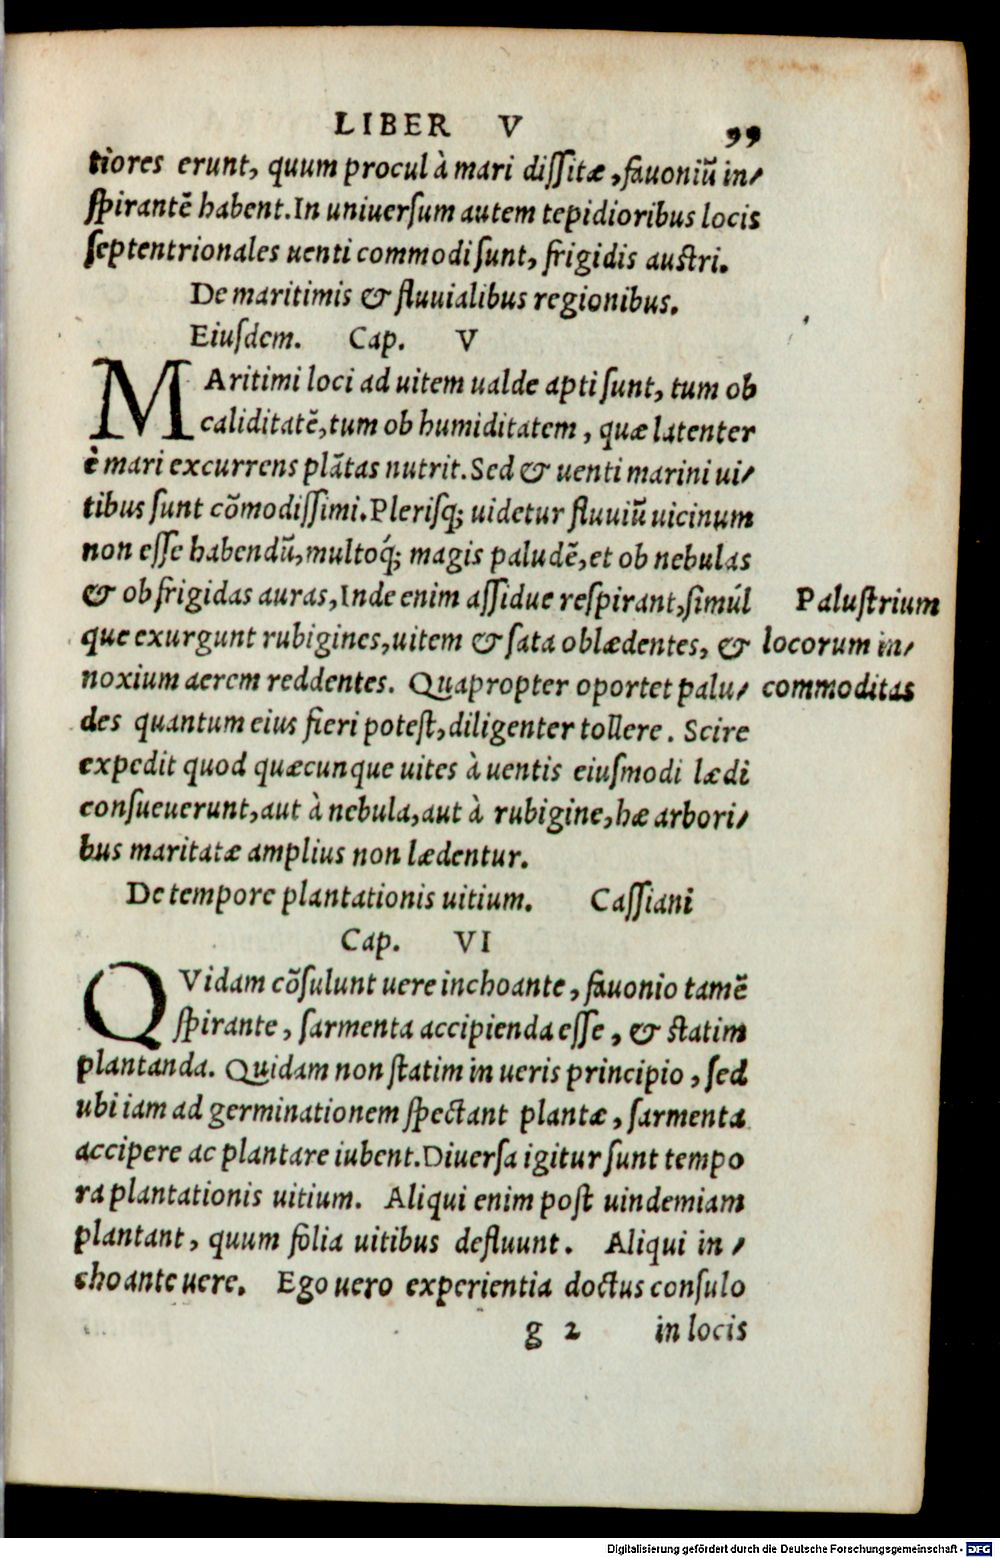 LIBER V 99
tiores erunt, quum procul à mari dissitæ, fauoniũ in⸗
ſpirantẽ habent. In uniuerſum autem tepidioribus locis
ſeptentrionales uenti commodi ſunt, frigidis auſtri.
De maritimis & fluuialibus regionibus.
Eiuſdem. Cap. V
MAritimi loci ad uitem ualde apti ſunt, tum ob
caliditatẽ, tum ob humiditatem, quæ latenter
è mari excurrens plãtas nutrit. Sed & uenti marini ui⸗
tibus ſunt cõmodiſſimi. Pleriſq; uidetur fluuiũ uicinum
non eſſe habendũ, multoq́; magis paludẽ, et ob nebulas
& ob frigidas auras, Inde enim aſſidue reſpirant, ſimúl
Paluſtrium
que exurgunt rubigines, uitem & ſata oblædentes, &
locorum in⸗
noxium aerem reddentes. Quapropter oportet palu⸗
commoditas
des quantum eius fieri poteſt, diligenter tollere. Scire
expedit quod quæcunque uites à uentis eiuſmodi lædi
conſueuerunt, aut à nebula, aut à rubigine, hæ arbori⸗
bus maritatæ amplius non lædentur.
De tempore plantationis uitium. Caſſiani
Cap. VI
QVidam cõſulunt uere inchoante, fauonio tamẽ
ſpirante, ſarmenta accipienda eſſe, & ſtatim
plantanda. Quidam non ſtatim in ueris principio, ſed
ubi iam ad germinationem ſpectant plantæ, ſarmenta
accipere ac plantare iubent. Diuerſa igitur ſunt tempo
ra plantationis uitium. Aliqui enim poſt uindemiam
plantant, quum folia uitibus defluunt. Aliqui in⸗
choante uere. Ego uero experientia doctus conſulo
g 2 in locis
Digitalisierung gefördert durch die Deutsche Forschungsgemeinschaft - DFG